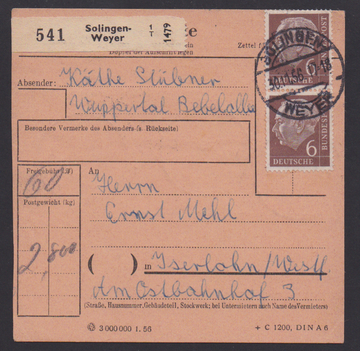 541 Solingen-Weyer 1 T 1479
Zettel
Doppel der Aufschriften
SOLINGEN
WEYER
Absender: Käthe Stübner
Wuppertal Bebelallee
Besondere Vermerke des Absenders (s. Rückseite)
6
DEUTSCHE BUNDESPOST
Freigebühr
60
Postgewicht (kg)
2,800
An
Herrn
Ernst Mehl
( ) in Iserlohn/Westf
Am Ostbahnhof 3
(Straße, Hausnummer, Gebäudeteil, Stockwerk; bei Untermietern auch Name des Vermieters)
3 000 000 1. 56
+ C 1200, DIN A 6